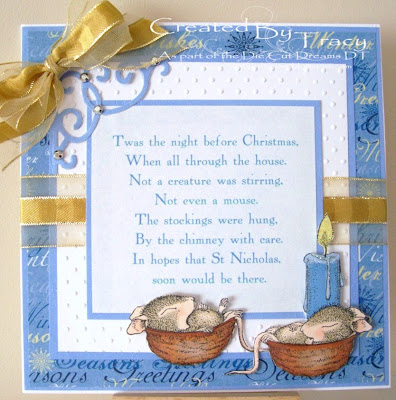 Created By Tracy
As part of the Die Cut Dreams DT
Twas the night before Christmas,
When all through the house.
Not a creature was stirring,
Not even a mouse.
The stockings were hung,
By the chimney with care.
In hopes that St Nicholas,
soon would be there.
Seasons Greetings
sons Greetings